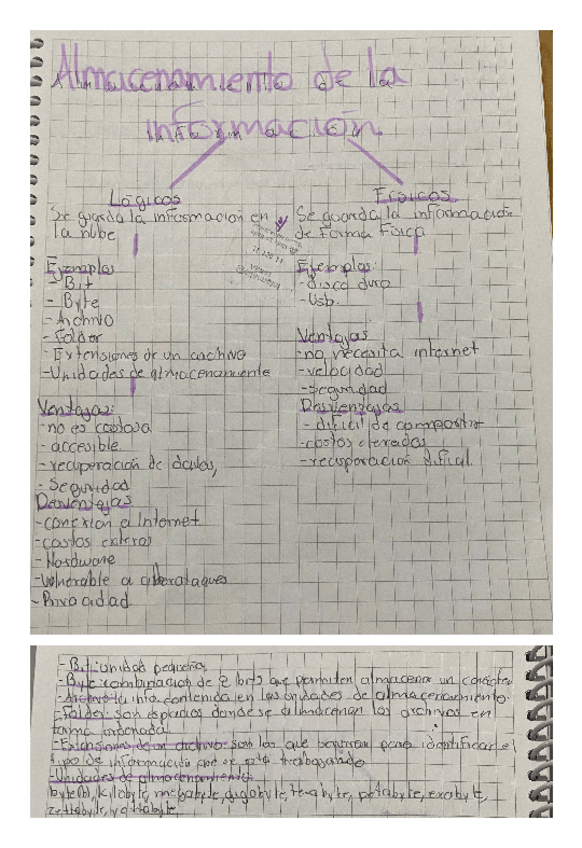 Almacenamiento de la
información
Lógicos
Se guarda la informacion en
la nube
Ejemplos
- Bit
- Byte
- Archivo
- Folder
- Extensiones de un archivo
- Unidades de almacenamiento
Ventajas:
- no es costosa
- accesible
- recuperación de datos,
- Seguridad
Desventajas
- conexion a Internet
- costos
- Hardware
- vulnerable a ciberataques
- Privacidad
Físicos
Se guarda la información
de forma fisica
Ejemplos:
- disco duro
- Usb.
Ventajas
- no necesita internet
- velocidad
- seguridad
Desventajas
- dificil de compartir
- costos elevados
- recuperacion dificil
- Bit: unidad pequeña
- Byte: combinacion de 8 bits que permiten almacenar un carácter
- Archivo: la info contenida en las unidades de almacenamiento.
- Folder: son espacios donde se almacenan los archivos en
forma ordenada
- Extensiones de un archivo: son las que permiten identificar el
tipo de información que se está trabajando
- Unidades de almacenamiento:
byte(b), kilobyte, megabyte, gigabyte, terabyte, petabyte, exabyte,
zettabyte, yottabyte